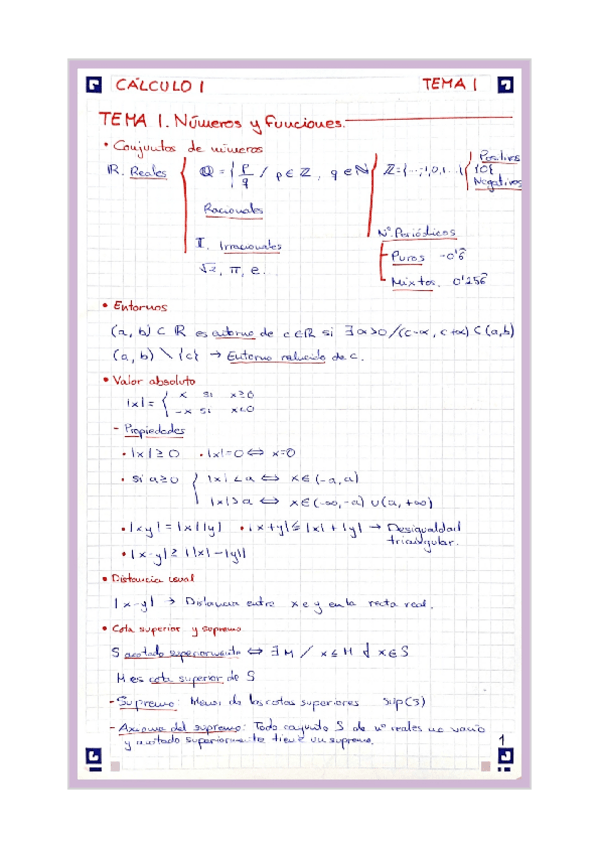 CÁLCULO 1 TEMA 1
TEMA 1. Números y Funciones.
• Conjuntos de números
ℝ. Reales
ℚ = { p/q / p ∈ ℤ, q ∈ ℕ
ℤ = {...,-1,0,1...}
Positivos
{0}
Negativos
Racionales
𝕀. Irracionales
√2, π, e...
Nº. Periódicos
Puros -0'6̂
Mixtos. 0'256̂
• Entornos
(a, b) ⊂ ℝ es entorno de c ∈ ℝ si ∃ α>0 / (c-α, c+α) ⊂ (a,b)
(a, b) \ {c} → Entorno reducido de c.
• Valor absoluto
|x| = { x si x≥0
-x si x<0
- Propiedades
• |x| ≥ 0 • |x|=0 ⇔ x=0
• si a≥0 { |x| < a ⇔ x ∈ (-a, a)
|x| > a ⇔ x ∈ (-∞, -a) ∪ (a, +∞)
• |xy| = |x||y| • |x+y| ≤ |x| + |y| → Desigualdad
triangular.
• |x-y| ≥ ||x| - |y||
• Distancia usual
|x-y| → Distancia entre x e y en la recta real.
• Cota superior y supremo
S acotado superiormente ⇔ ∃ M / x ≤ M ∀ x ∈ S
M es cota superior de S
- Supremo: Menor de las cotas superiores sup(S)
- Axioma del supremo: Todo conjunto S de nº reales no vacío
y acotado superiormente tiene un supremo.
1